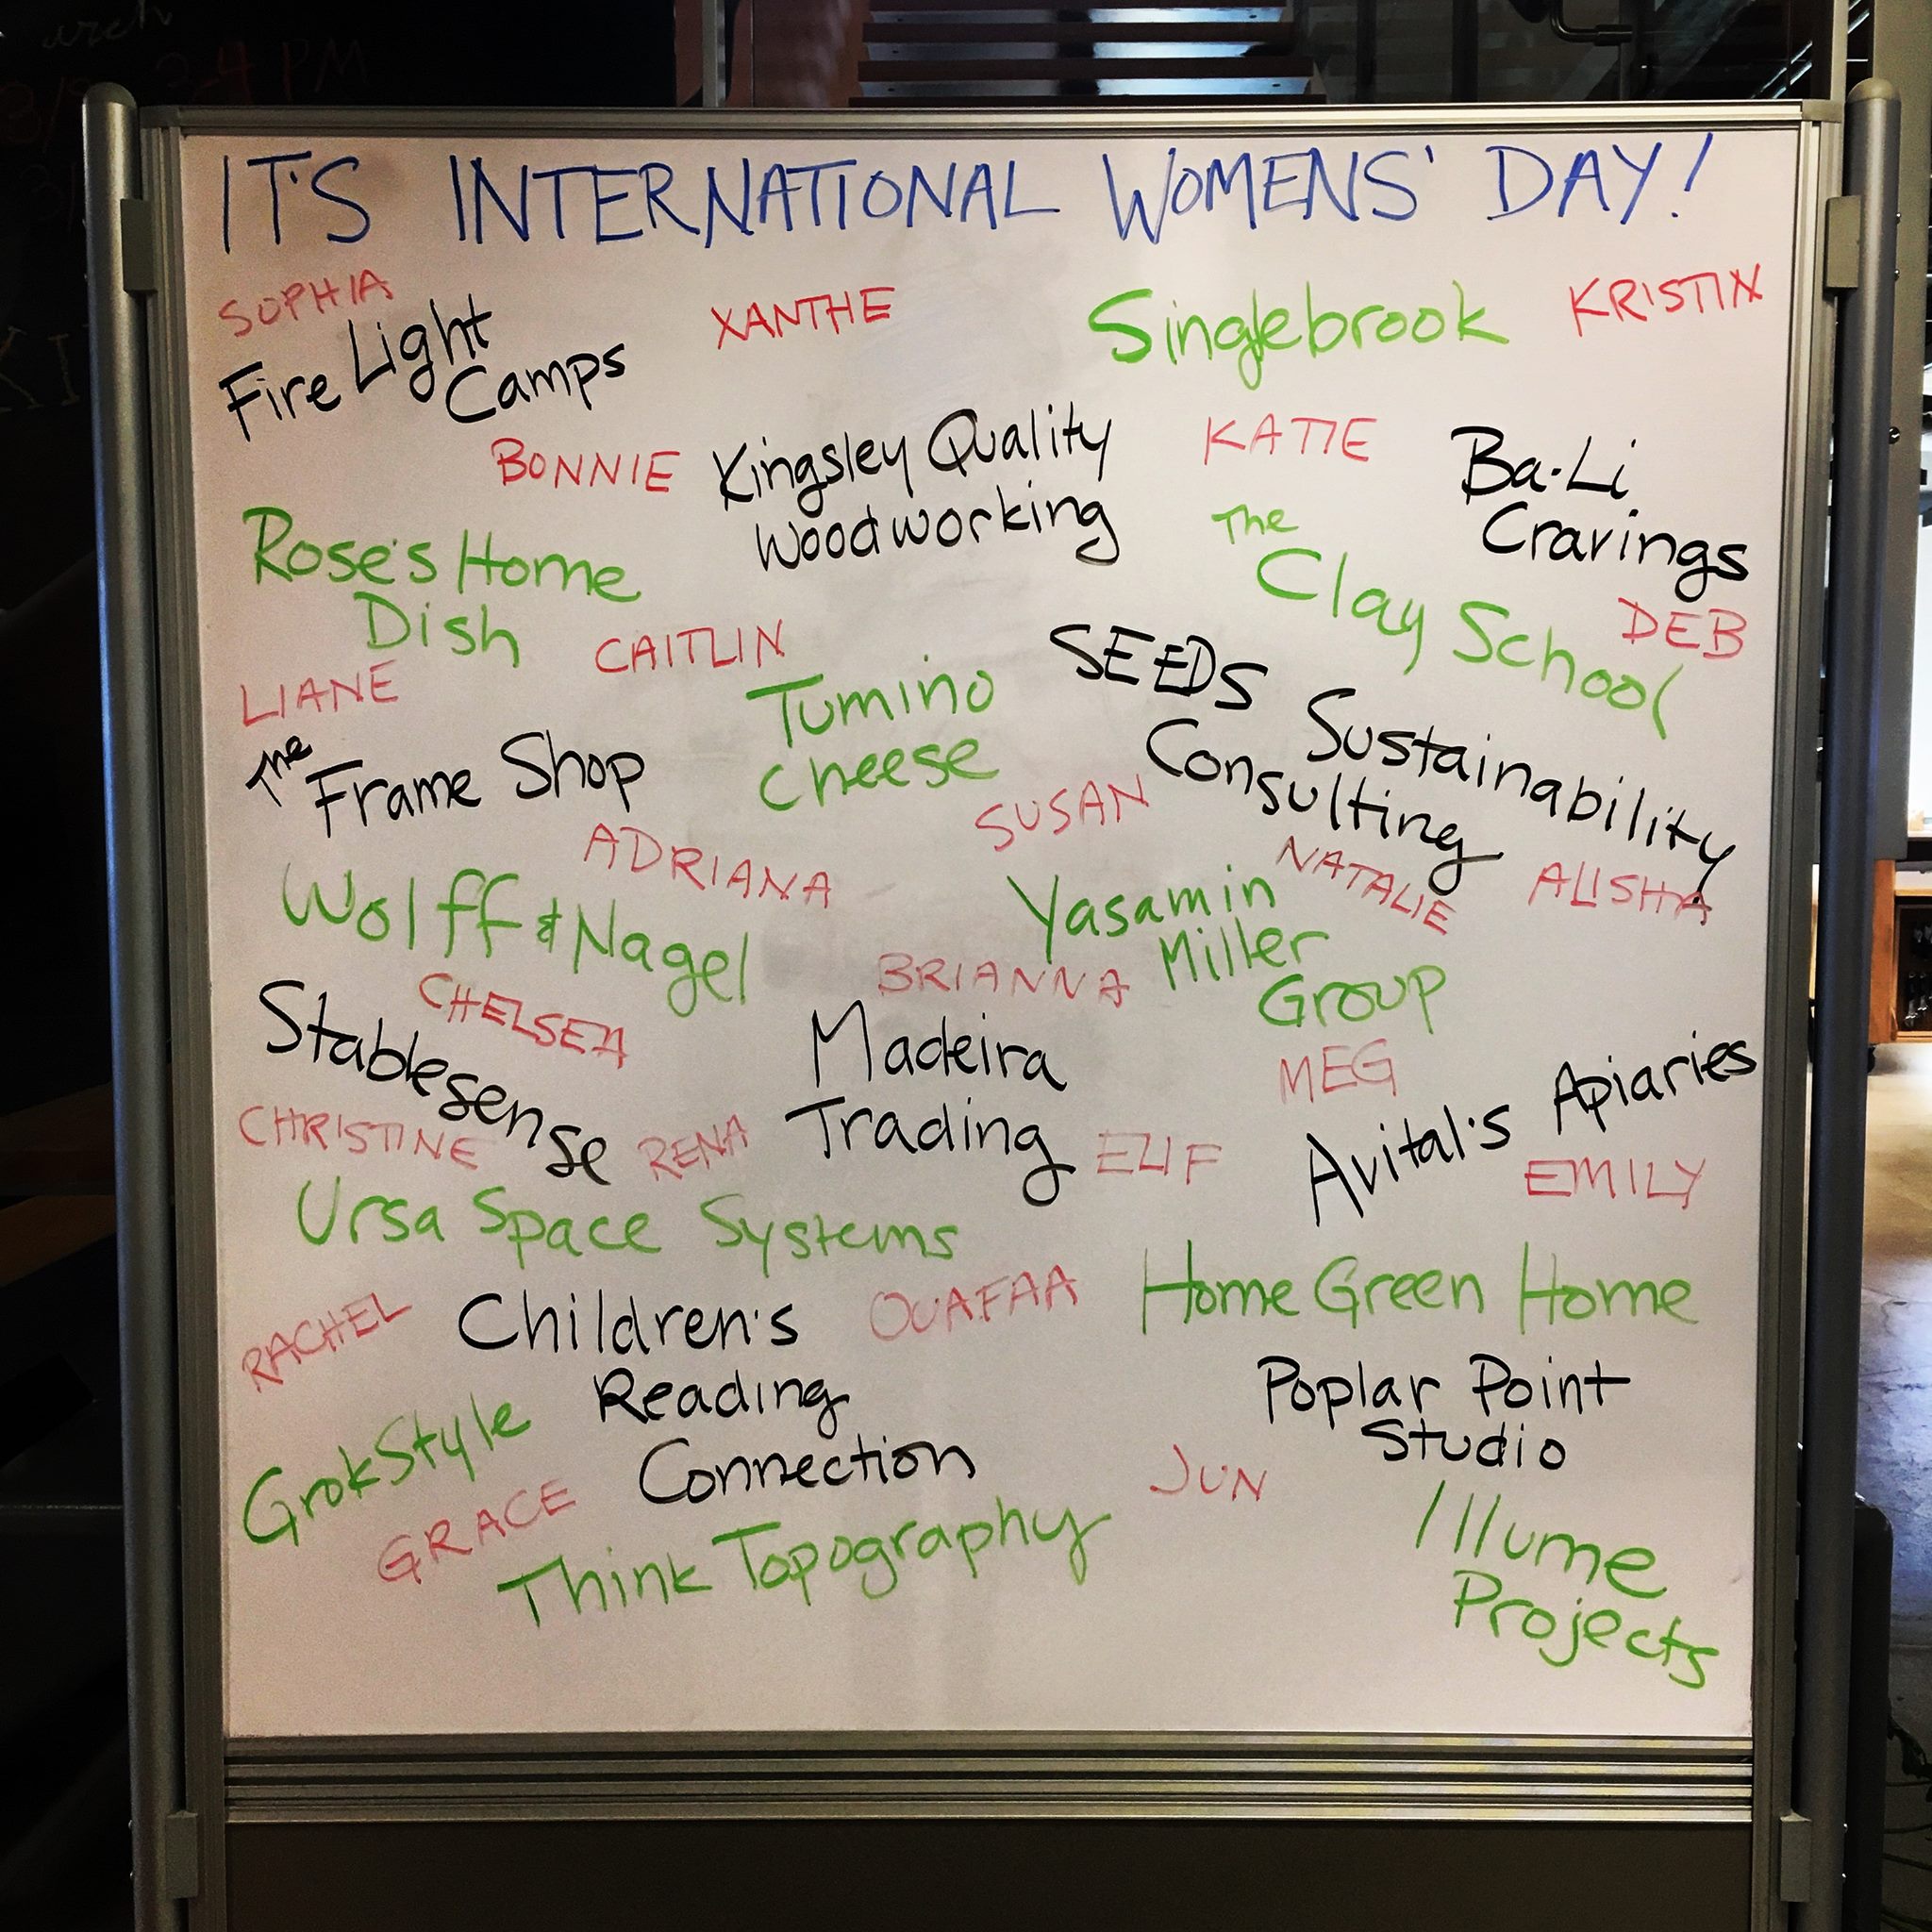 IT'S INTERNATIONAL WOMENS' DAY!
SOPHIA
Fire Light
Camps
XANTHE
Singlebrook
KRISTIN
BONNIE
Kingsley Quality
Woodworking
KATIE
Ba-Li
Cravings
Rose's Home
Dish
The
Clay School
DEB
CAITLIN
LIANE
The
Frame Shop
Tumino
cheese
SEEDS
Sustainability
Consulting
SUSAN
ADRIANA
NATALIE
ALISHA
Wolff & Nagel
Yasamin
Miller
Group
BRIANNA
CHELSEA
Stablesense
Madeira
Trading
MEG
Avital's Apiaries
CHRISTINE
RENA
ELIF
EMILY
Ursa Space Systems
Home Green Home
RACHEL
Children's
Reading
Connection
OUAFAA
Poplar Point
Studio
GrokStyle
GRACE
JUN
Think Topography
Illume
Projects
3-4 PM